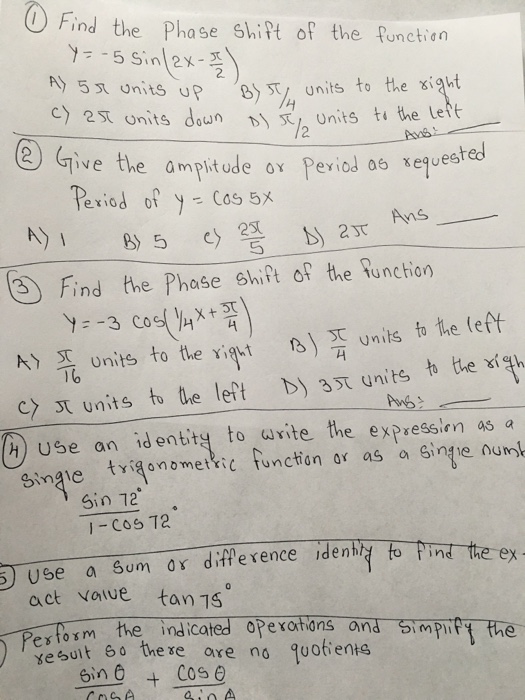 ① Find the Phase Shift of the function
y = -5 sin(2x - π/2)
A) 5π units up B) π/4 units to the right
C) 2π units down D) π/2 units to the left
Ans: ___
② Give the amplitude or Period as requested
Period of y = Cos 5x
A) 1 B) 5 C) 2π/5 D) 2π Ans ___
③ Find the Phase shift of the function
y = -3 cos(1/4x + π/4)
A) π/16 units to the right B) π/4 units to the left
C) π units to the left D) 3π units to the righ
Ans: ___
④ Use an identity to write the expression as a
single trigonometric function or as a single numb
sin 72° / 1 - cos 72°
5) Use a sum or difference identity to find the ex-
act value tan 75°
) Perform the indicated operations and simplify the
result so there are no quotients
sin θ / cos θ + cos θ / sin θ